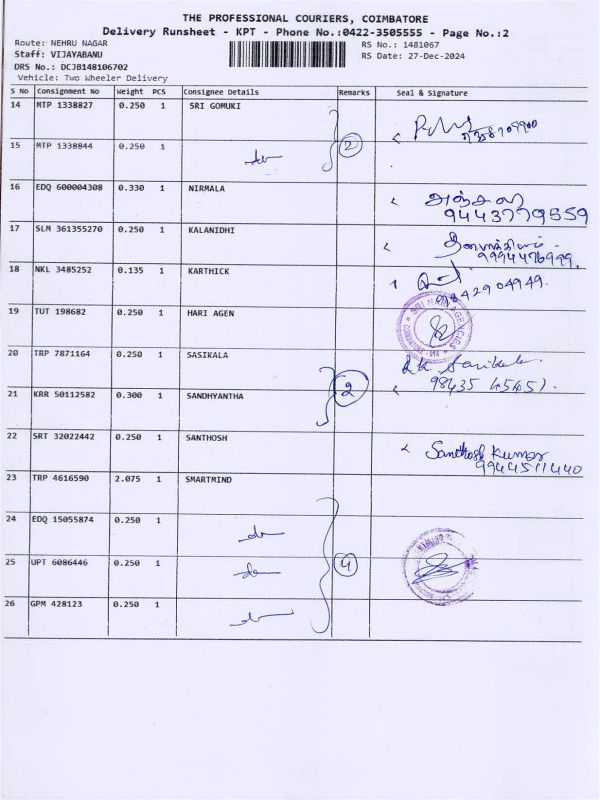 THE PROFESSIONAL COURIERS, COIMBATORE
Delivery Runsheet - KPT - Phone No.:0422-3505555 - Page No.:2
Route: NEHRU NAGAR
RS No.: 1481067
Staff: VIJAYABANU
RS Date: 27-Dec-2024
DRS No.: DCJB148106702
Vehicle: Two Wheeler Delivery
S No Consignment No Weight PCS Consignee Details Remarks Seal & Signature
14 MTP 1338827 0.250 1 SRI GOMUKI
15 MTP 1338844 0.250 1 2
16 EDQ 600004308 0.330 1 NIRMALA
9443779559
17 SLM 361355270 0.250 1 KALANIDHI
9994476999.
18 NKL 3485252 0.135 1 KARTHICK
9842904949.
19 TUT 198682 0.250 1 HARI AGEN
SRI HARI AGENCIES
20 TRP 7871164 0.250 1 SASIKALA
21 KRR 50112582 0.300 1 SANDHYANTHA 2
22 SRT 32022442 0.250 1 SANTHOSH Santhosh Kumar
9944511440
23 TRP 4616590 2.075 1 SMARTMIND
24 EDQ 15055874 0.250 1
25 UPT 6086446 0.250 1 4
26 GPM 428123 0.250 1